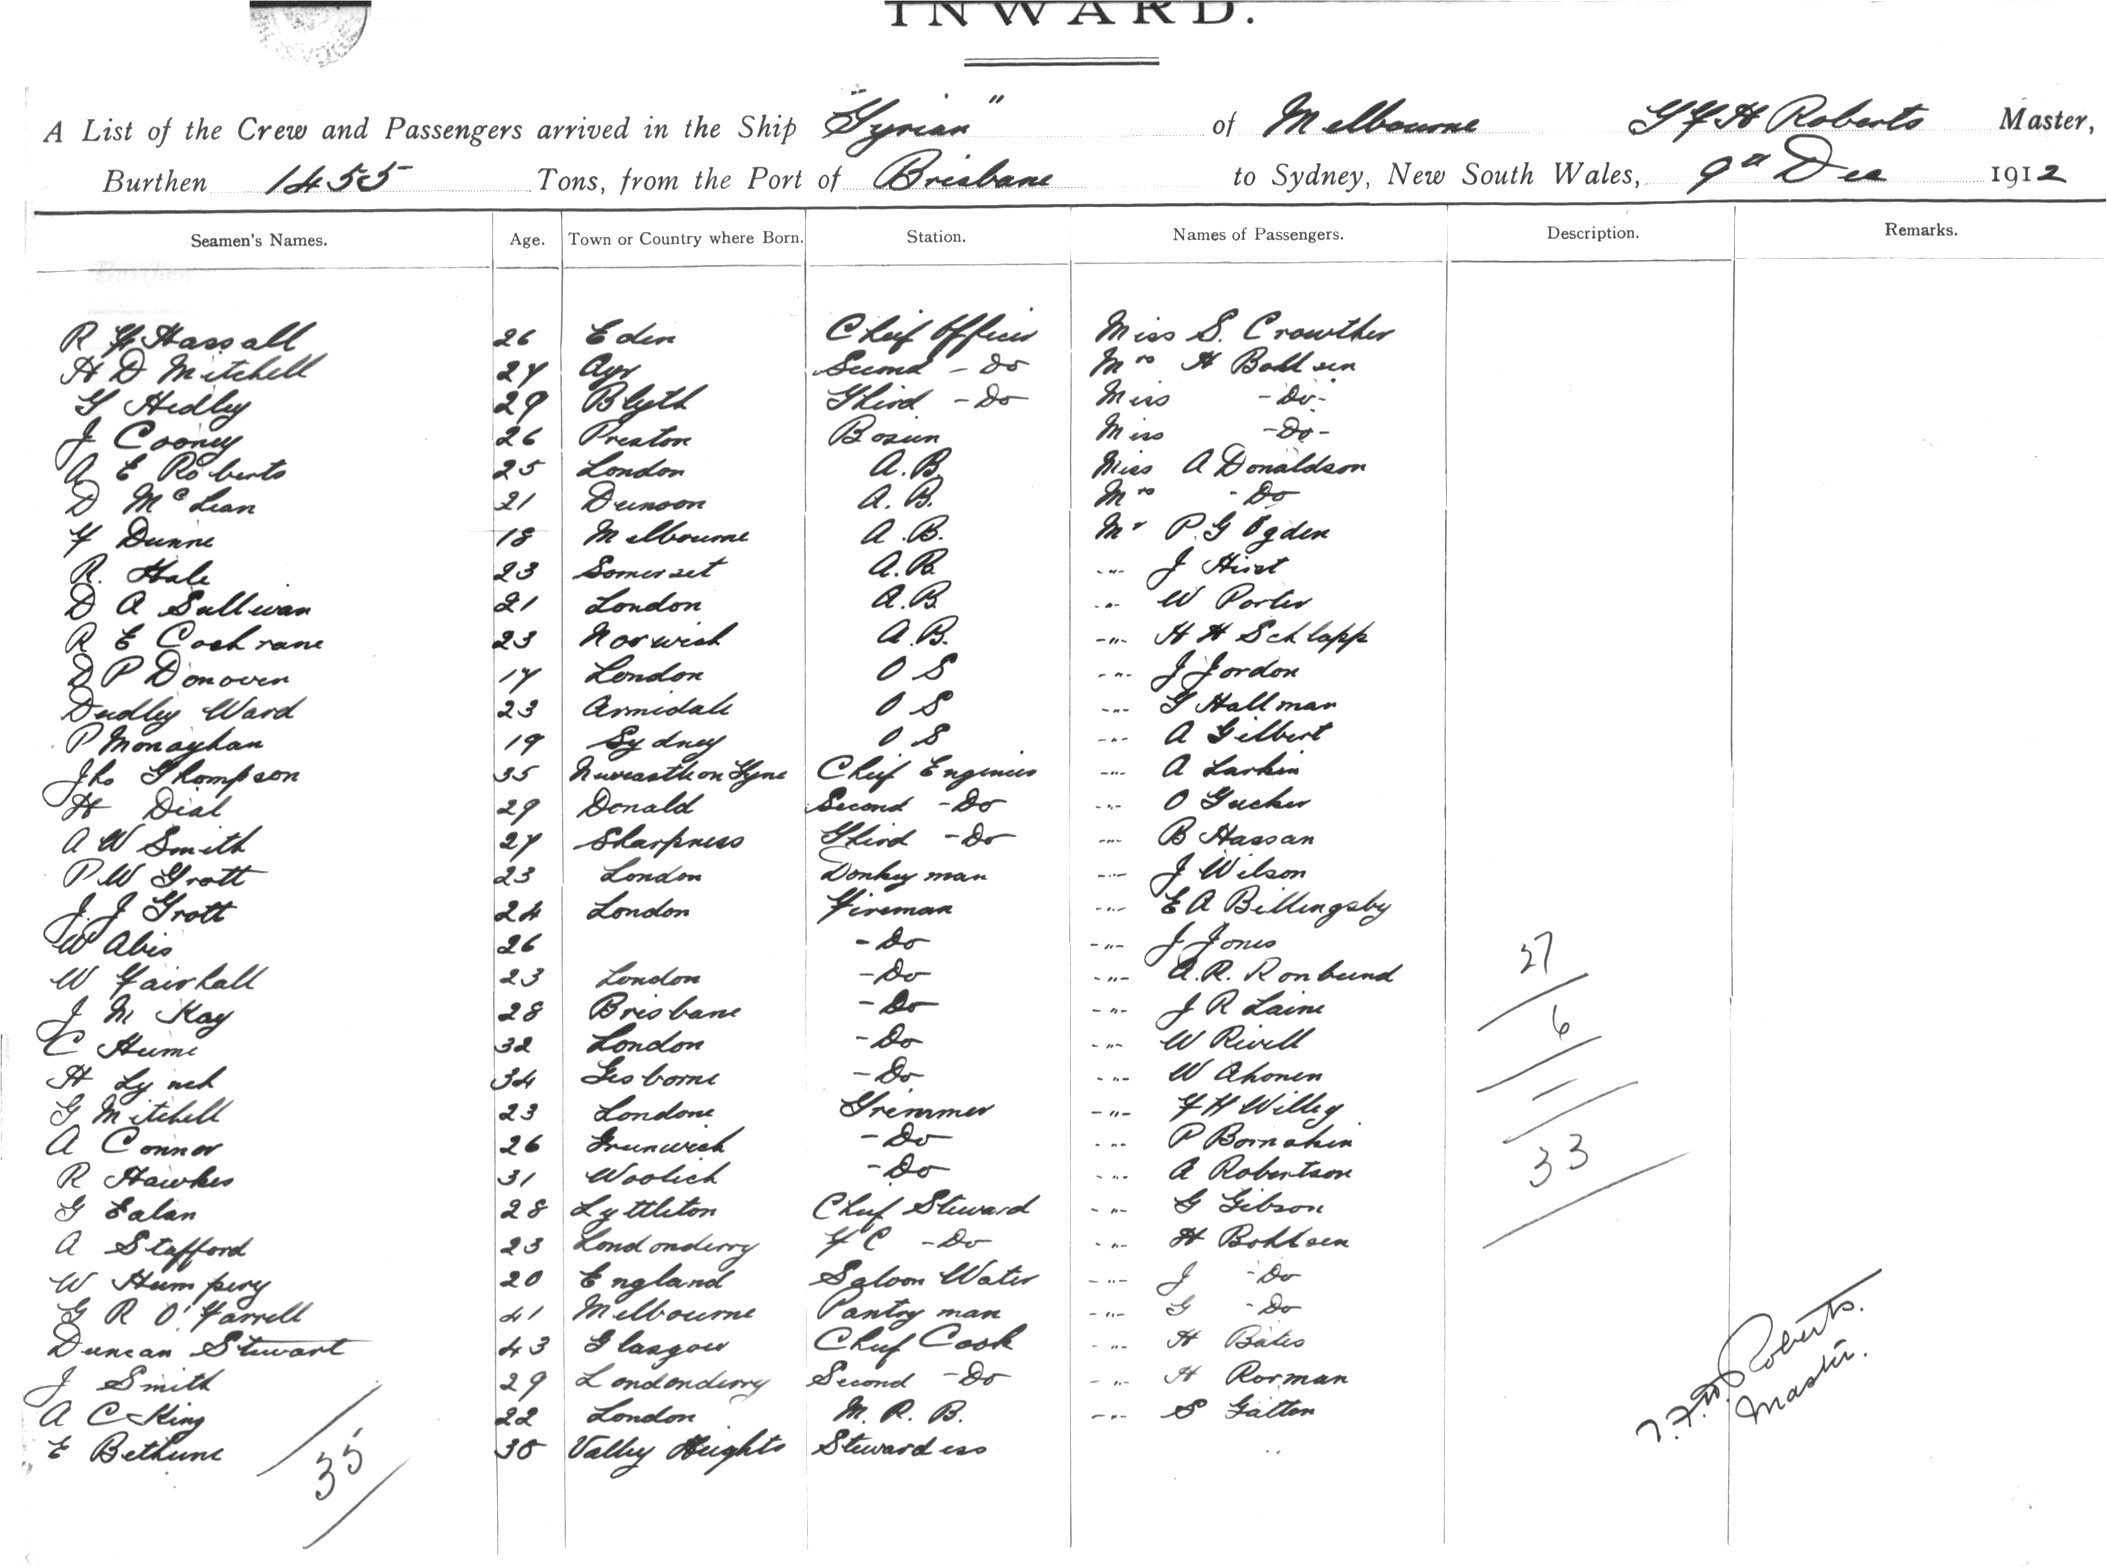 INWARD.
A List of the Crew and Passengers arrived in the Ship "Tyrian" of Melbourne T F H Roberts Master,
Burthen 1455 Tons, from the Port of Brisbane to Sydney, New South Wales, 9th Dec 1912
Seamen's Names. Age. Town or Country where Born. Station. Names of Passengers. Description. Remarks.
R F Hassall 26 Eden Chief Officer Miss S. Crowther
H D Mitchell 27 Ayr Second - Do Mrs H Bohlsen
T Hedley 29 Blyth Third - Do Miss - Do -
J Cooney 26 Preston Bosun Miss - Do -
A E Roberts 25 London A.B. Miss A Donaldson
D McLean 21 Dunoon A.B. Mrs - Do
F Dunne 18 Melbourne A.B. Mr P. G Ogden
R. Hale 23 Somerset A.B. -"- J Hirst
D A Sullivan 21 London A.B. -"- W Porter
R E Cochrane 23 Norwich A.B. -"- H H Schlapp
D P Donoven 17 London O S -"- J Jordon
Dudley Ward 23 Armidale O S -"- G Hallman
P Monaghan 19 Sydney O S -"- A Gilbert
Jho Thompson 35 Newcastle on Tyne Chief Engineer -"- A Larkin
H Dial 29 Donald Second - Do -"- O Tucker
A W Smith 27 Sharpness Third - Do -"- B Hassan
P W Trott 23 London Donkey man -"- J Wilson
J. J Trott 24 London Fireman -"- E A Billingsby
W Abis 26 - Do -"- J Jones 27
W Fairhall 23 London - Do -"- A. R. Ronbund
J M Kay 28 Brisbane - Do -"- J R Laine 6
C Hume 32 London - Do -"- W Rivell
H Lynch 34 Gisborne - Do -"- W Ahonen
G Mitchell 23 Londone Trimmer -"- F H Willey
A Connor 26 Greenwich - Do -"- P 33
R Hawkes 31 Woolich - Do -"- A Robertson
G Ealan 28 Lyttleton Chief Steward -"- G Gibson
A Stafford 23 Londonderry F C - Do -"- H Bohlsen
W Humpery 20 England Saloon Water -"- J - Do
G R O'Farrell 41 Melbourne Pantry man -"- G - Do
Duncan Stewart 43 Glasgow Chief Cook -"- H Bates
J Smith 29 Londonderry Second - Do -"- H Rorman
A C King 22 London M. R. B. -"- S Gatten
E Bethune 38 Valley Heights Stewardess
35
T. F. H. Roberts.
Master.